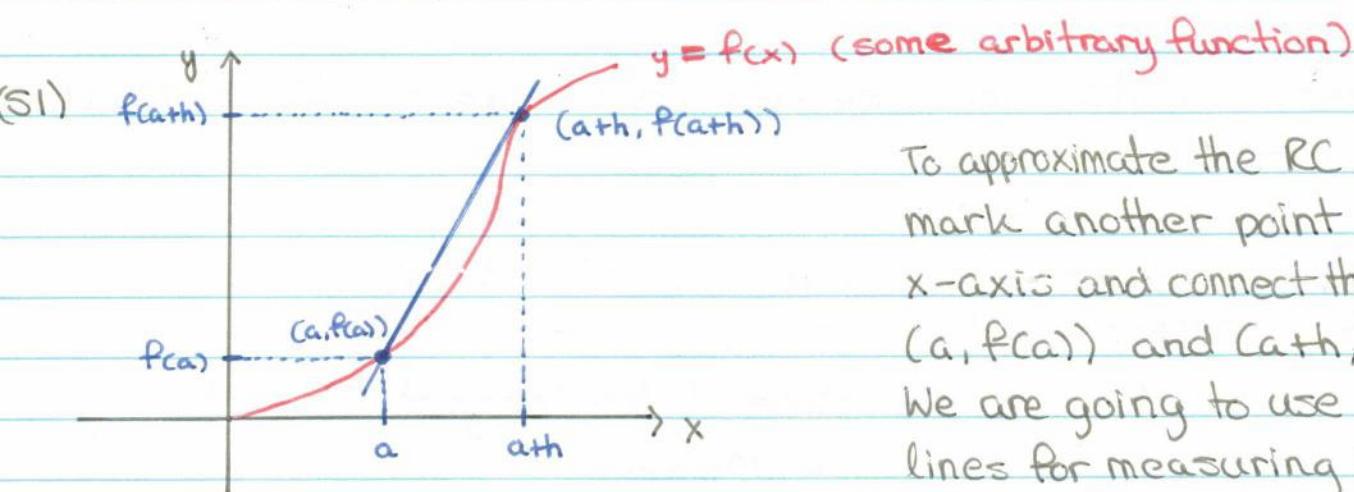 y = f(x) (some arbitrary function)
y
(S1)
f(a+h)
(a+h, f(a+h))
(a, f(a))
f(a)
a
a+h
x
To approximate the RC
mark another point
x-axis and connect th
(a, f(a)) and (a+h,
We are going to use
lines for measuring